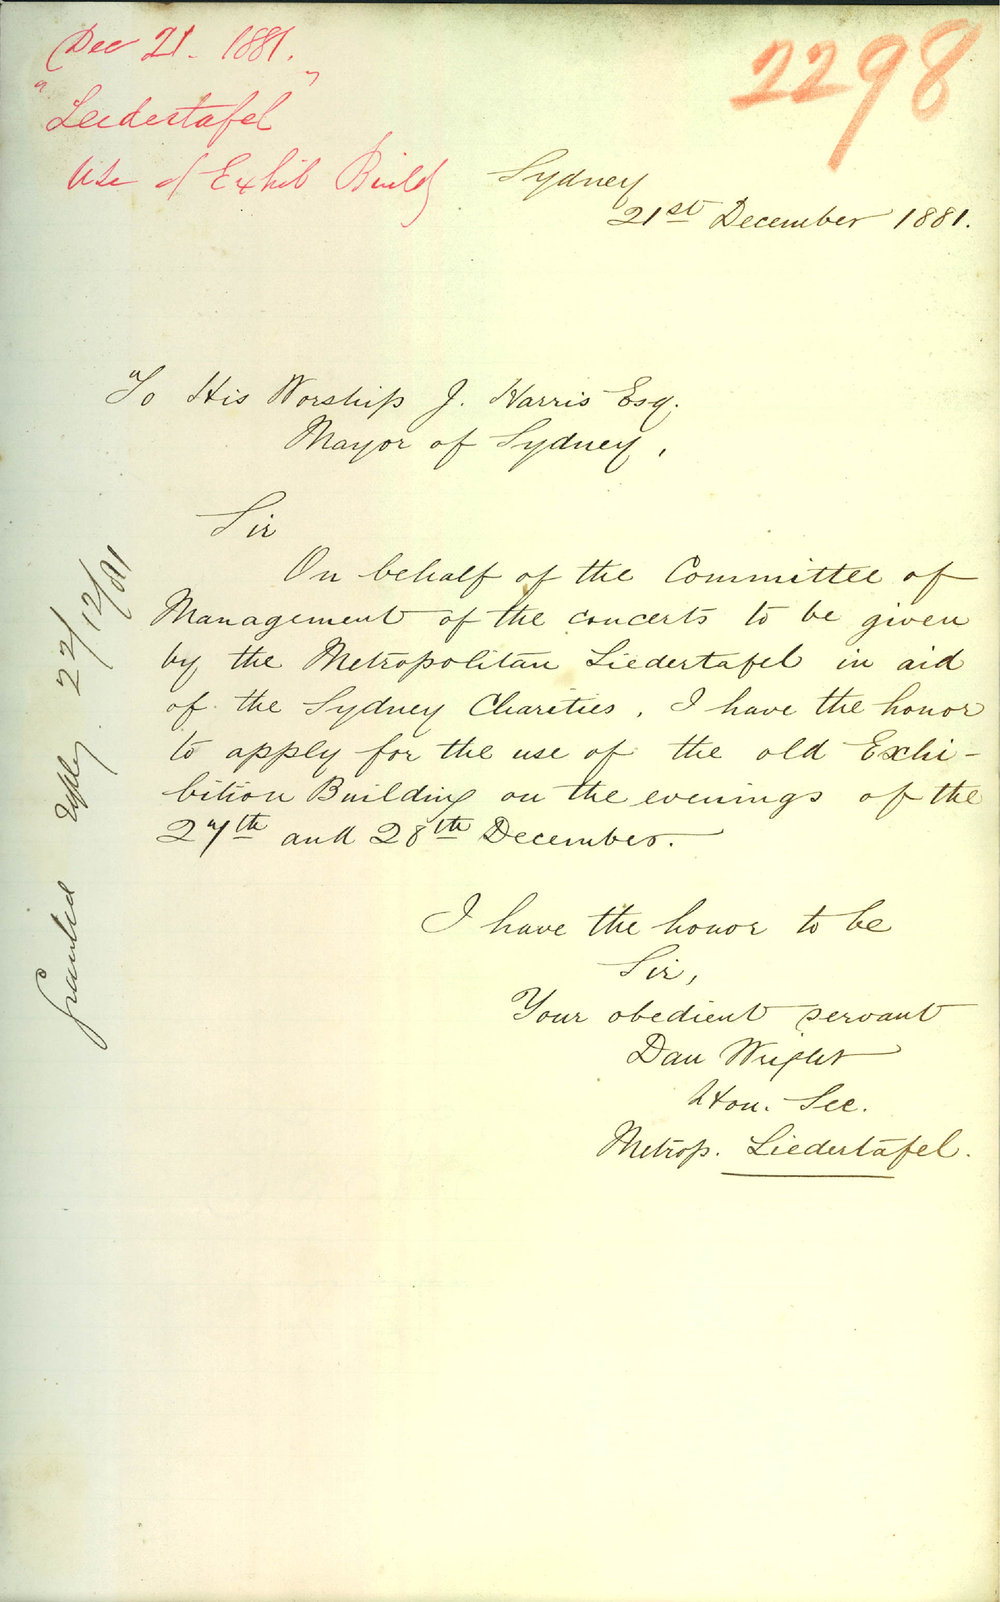 Dec 21. 1881.
"Leidertafel"
Use of Exhib Build
2298
Sydney
21st December 1881.
To His Worship J. Harris Esq.
Mayor of Sydney,
Sir
On behalf of the Committee of
Management of the concerts to be given
by the Metropolitan Liedertafel in aid
of the Sydney Charities, I have the honor
to apply for the use of the old Exhi-
bition Building on the evenings of the
27th and 28th December.
I have the honor to be
Sir,
Your obedient servant
Dan Wright
Hon. Sec.
Metrop. Liedertafel.
Granted 22/12/81